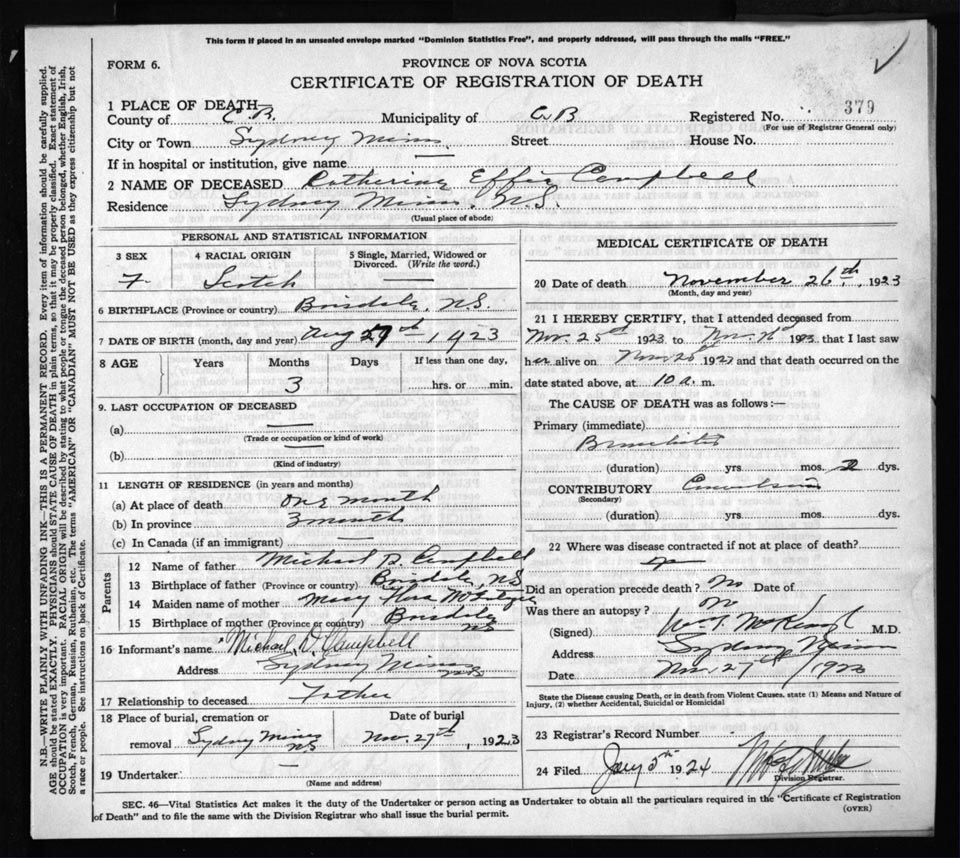 This form if placed in an unsealed envelope marked "Dominion Statistics Free", and properly addressed, will pass through the mails "FREE."
FORM 6.
PROVINCE OF NOVA SCOTIA
CERTIFICATE OF REGISTRATION OF DEATH
379
1 PLACE OF DEATH—
County of C.B. Municipality of C.B Registered No.
(For use of Registrar General only)
City or Town Sydney Mines Street House No.
If in hospital or institution, give name —
2 NAME OF DECEASED Catherine Effie Campbell
Residence Sydney Mines, N.S.
(Usual place of abode)
PERSONAL AND STATISTICAL INFORMATION
3 SEX 4 RACIAL ORIGIN 5 Single, Married, Widowed or Divorced. (Write the word.)
F. Scotch
6 BIRTHPLACE (Province or country) N.S.
7 DATE OF BIRTH (month, day and year) Aug 29th 1923
8 AGE Years Months Days If less than one day,
3 hrs. or min.
9. LAST OCCUPATION OF DECEASED
(a) —
(Trade or occupation or kind of work)
(b) —
(Kind of industry)
11 LENGTH OF RESIDENCE (in years and months)
(a) At place of death One month
(b) In province 3 months
(c) In Canada (if an immigrant) —
Parents
12 Name of father Michael D. Campbell
13 Birthplace of father (Province or country) N.S
14 Maiden name of mother Mary
15 Birthplace of mother (Province or country) NS
16 Informant's name Michael D. Campbell
Address Sydney Mines
17 Relationship to deceased Father
18 Place of burial, cremation or Date of burial
removal Sydney Mines NS Nov. 27th, 1923
19 Undertaker
(Name and address)
MEDICAL CERTIFICATE OF DEATH
20 Date of death November 26th, 1923
(Month, day and year)
21 I HEREBY CERTIFY, that I attended deceased from
Nov. 25th 1923 to Nov. 1923 that I last saw
her alive on Nov 192 and that death occurred on the
date stated above, at 10 a. m.
The CAUSE OF DEATH was as follows:—
Primary (immediate)
Bronchitis
(duration) yrs. mos. 2 dys.
CONTRIBUTORY
(Secondary)
(duration) yrs. mos. dys.
22 Where was disease contracted if not at place of death?
Did an operation precede death? No Date of
Was there an autopsy? No
(Signed) M.D.
Address Sydney Mines
Date Nov. 27th / 1923
State the Disease causing Death, or in death from Violent Causes, state (1) Means and Nature of
Injury, (2) whether Accidental, Suicidal or Homicidal
23 Registrar's Record Number
24 Filed Jany 5th 1924
Division Registrar.
SEC. 46—Vital Statistics Act makes it the duty of the Undertaker or person acting as Undertaker to obtain all the particulars required in the "Certificate of Registration
of Death" and to file the same with the Division Registrar who shall issue the burial permit.
(OVER)
N.B.—WRITE PLAINLY WITH UNFADING INK—THIS IS A PERMANENT RECORD. Every item of information should be carefully supplied.
AGE should be stated EXACTLY. PHYSICIANS should STATE CAUSE OF DEATH in plain terms, so that it may be properly classified. Exact statement of
OCCUPATION is very important. RACIAL ORIGIN will be described by stating to what people or tongue the deceased person belonged, whether English, Irish,
Scotch, French, German, Russian, Ruthenian, etc. The terms "AMERICAN" OR "CANADIAN" MUST NOT BE USED as they express citizenship but not
a race or people. See instructions on back of Certificate.